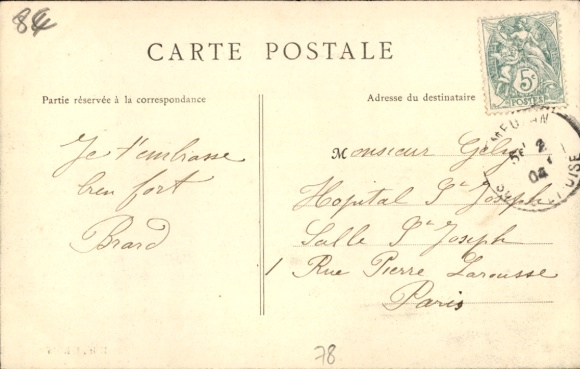 84
CARTE POSTALE
5c
POSTES
Partie réservée à la correspondance
Adresse du destinataire
Je t'embrasse
bien fort
Brard
Monsieur Gely
Hopital St Joseph
Salle St Joseph
1 Rue Pierre Larousse
Paris
04
OISE
78